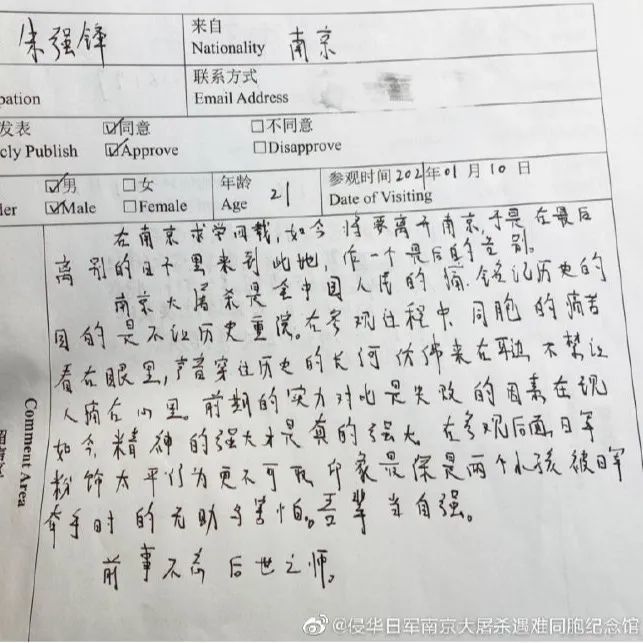 朱强锋
来自
Nationality 南京
联系方式
pation
Email Address
发表 同意 不同意
cly Publish Approve Disapprove
男 女 年龄 21 参观时间 2021年01月10日
der Male Female Age Date of Visiting
在南京求学四载,如今将要离开南京,于是在最后
离别的日子里来到此地,作一个最后的告别。
南京大屠杀是全中国人民的痛,铭记历史的
目的是不让历史重演。在参观过程中,同胞的痛苦
看在眼里,声音穿过历史的长河仿佛来在耳边,不禁让
人痛在心里。前期的实力对比是失败的因素在现
如今,精神的强大才是真的强大。在参观后面,日军
粉饰太平行为更不可取,印象最深是两个小孩被日军
牵手时的无助与害怕。吾辈当自强。
前事不忘后世之师。
Comment Area
@侵华日军南京大屠杀遇难同胞纪念馆